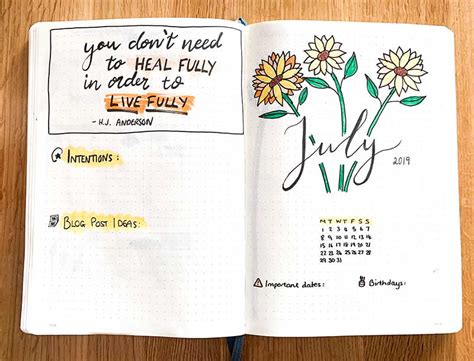 you don't need
to HEAL FULLY
in order to
LIVE FULLY
- H.J. ANDERSON
INTENTIONS:
BLOG POST IDEAS:
July
2019
M T W T F S S
1 2 3 4 5 6 7
8 9 10 11 12 13 14
15 16 17 18 19 20 21
22 23 24 25 26 27 28
29 30 31
Important dates:
Birthdays: